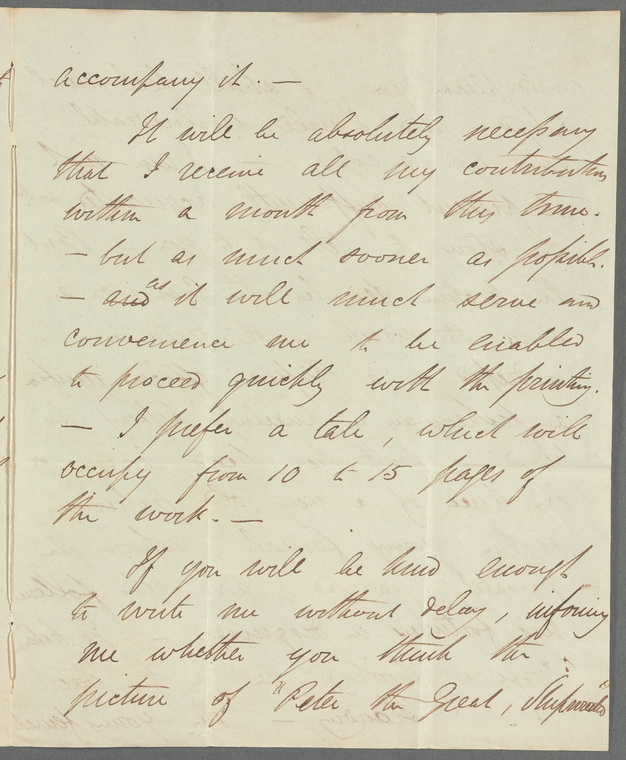 accompany it. —
It will be absolutely necessary
that I receive all my contributions
within a month from this time.
— but as much sooner as possible.
— and as it will much serve and
convenience me to be enabled
to proceed quickly with the printing.
— I prefer a tale, which will
occupy from 10 to 15 pages of
the work. —
If you will be kind enough
to write me without delay, informing
me whether you think the
picture of "Peter the Great, Shipwrecked"